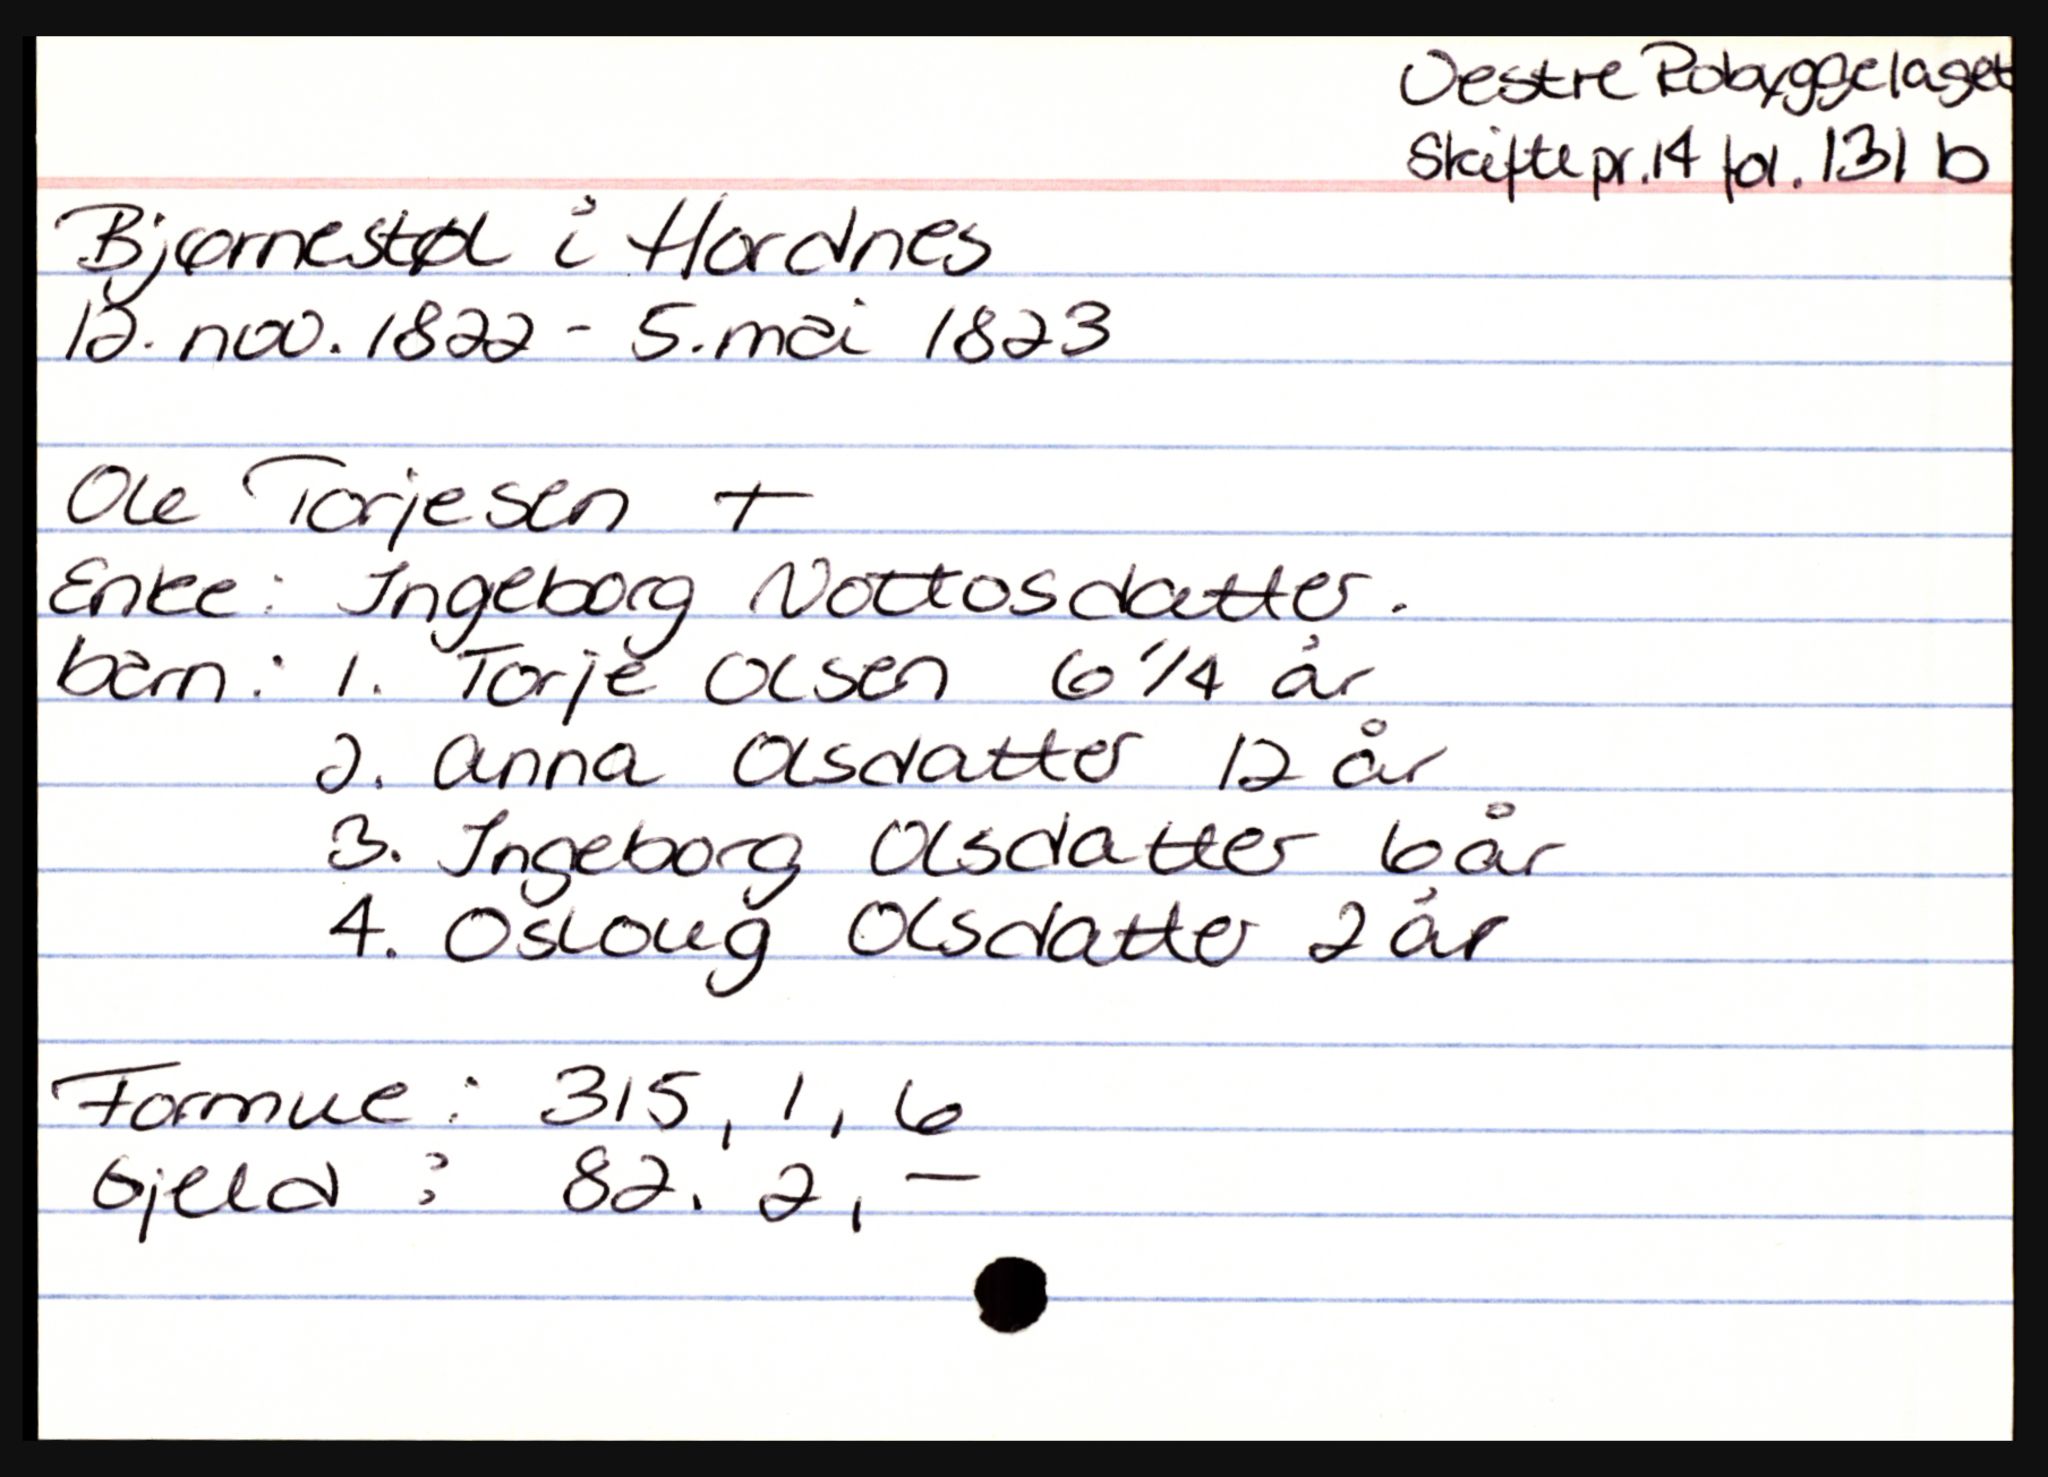 Vestre Robyggelaget
Skiftepr. 14 fol. 131 b
Bjørnestøl i Hordnes
12. nov. 1822 - 5. mai 1823
Ole Torjesen +
Enke: Ingeborg Nottosdatter.
barn: 1. Torje Olsen 6 1/4 år
2. Anna Olsdatter 12 år
3. Ingeborg Olsdatter 6 år
4. Osloug Olsdatter 2 år
Formue: 315, 1, 6
Gjeld: 82. 2, —